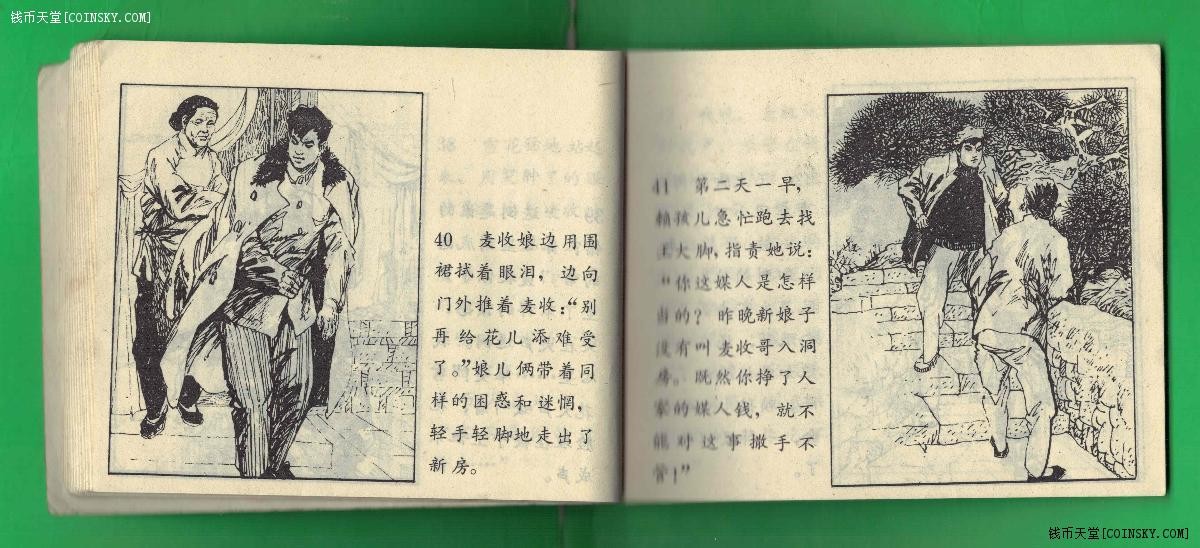 钱币天堂[COINSKY.COM]
40 麦收娘边用围
裙拭着眼泪，边向
门外推着麦收：“别
再给花儿添难受
了。”娘儿俩带着同
样的困惑和迷惘，
轻手轻脚地走出了
新房。
41 第二天一早，
赖孩儿急忙跑去找
王大脚，指责她说：
“你这媒人是怎样
当的？昨晚新娘子
没有叫麦收哥入洞
房。既然你挣了人
家的媒人钱，就不
能对这事撒手不
管！”
钱币天堂[COINSKY.COM]